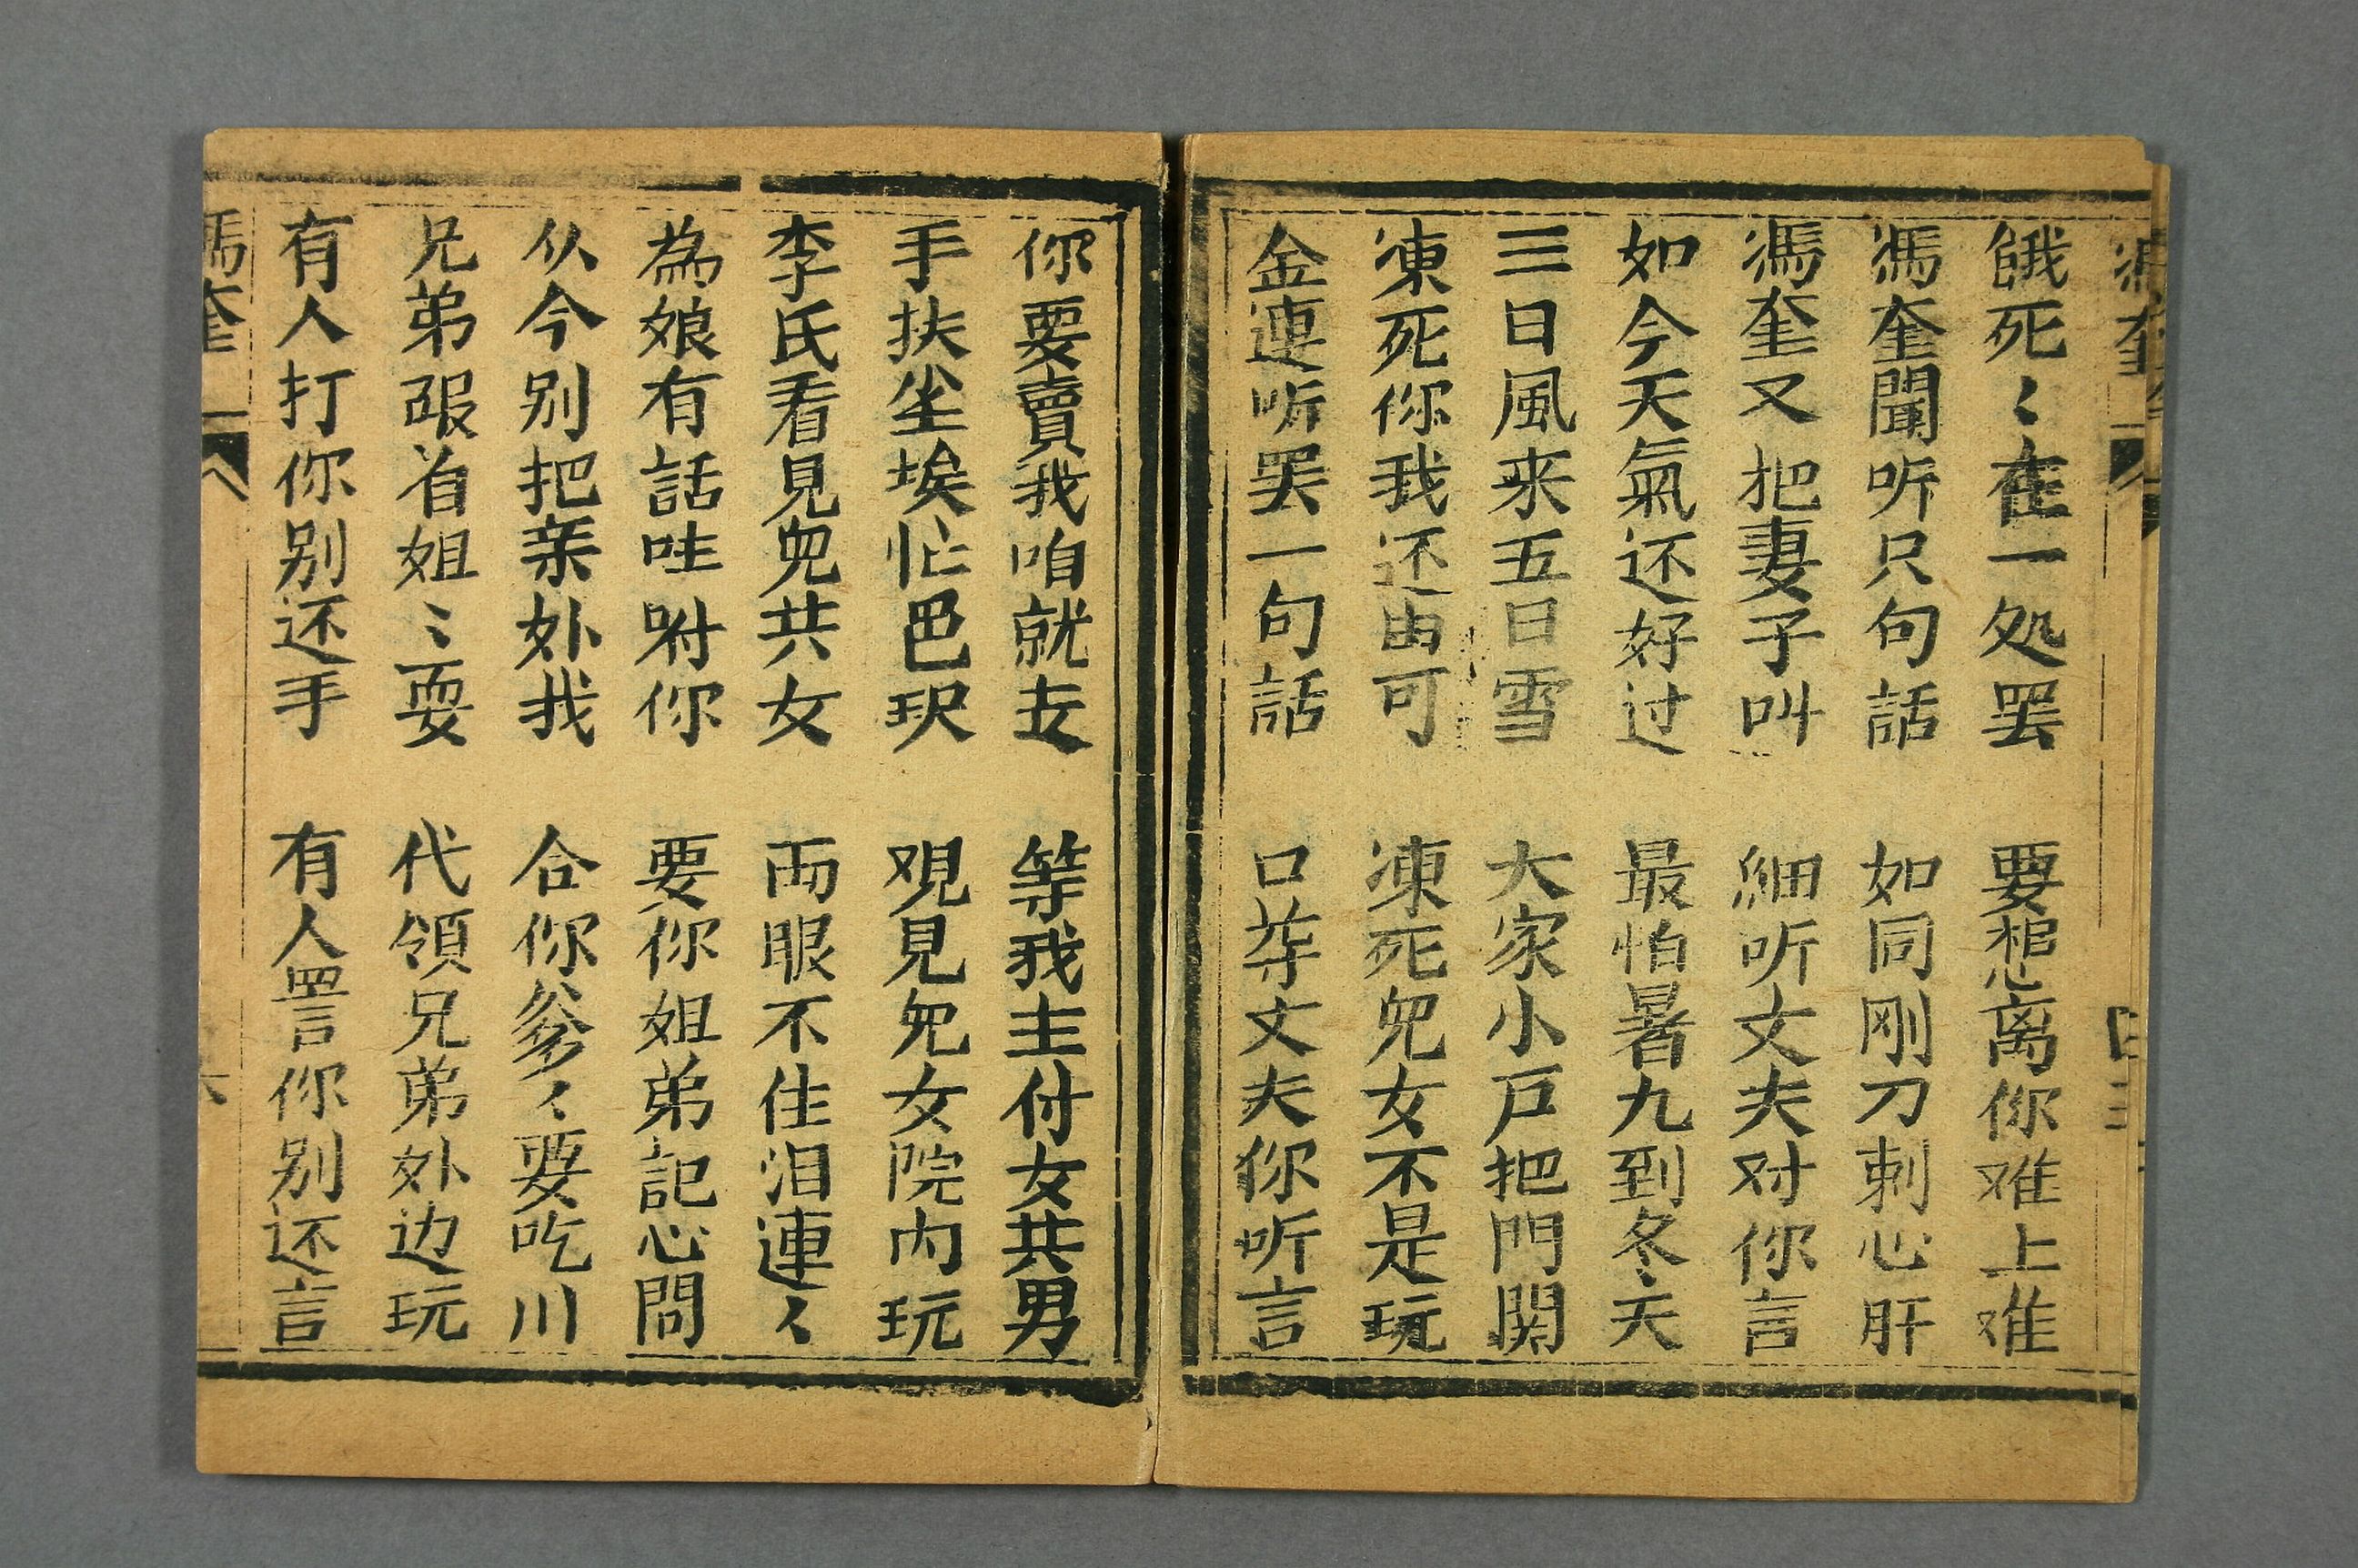 餓死〻在一処罢　要想离你难上难
馮奎聞听只句話　如同刚刀刺心肝
馮奎又把妻子叫　細听丈夫对你言
如今天氣还好过　最怕暑九到冬天
三日風来五日雪　大家小户把門関
凍死你我还由可　凍死兒女不是玩
金連听罢一句話　口苹丈夫你听言
你要賣我咱就去　等我主付女共男
手扶坐埃忙巴
観見兒女院内玩
李氏看見兒共女　両眼不住泪連〻
為娘有話哇咐你　要你姐弟記心問
从今别把亲外我　合你爹〻要吃川
兄弟跟着姐〻耍　代領兄弟外边玩
有人打你别还手　有人詈你别还言
馮奎